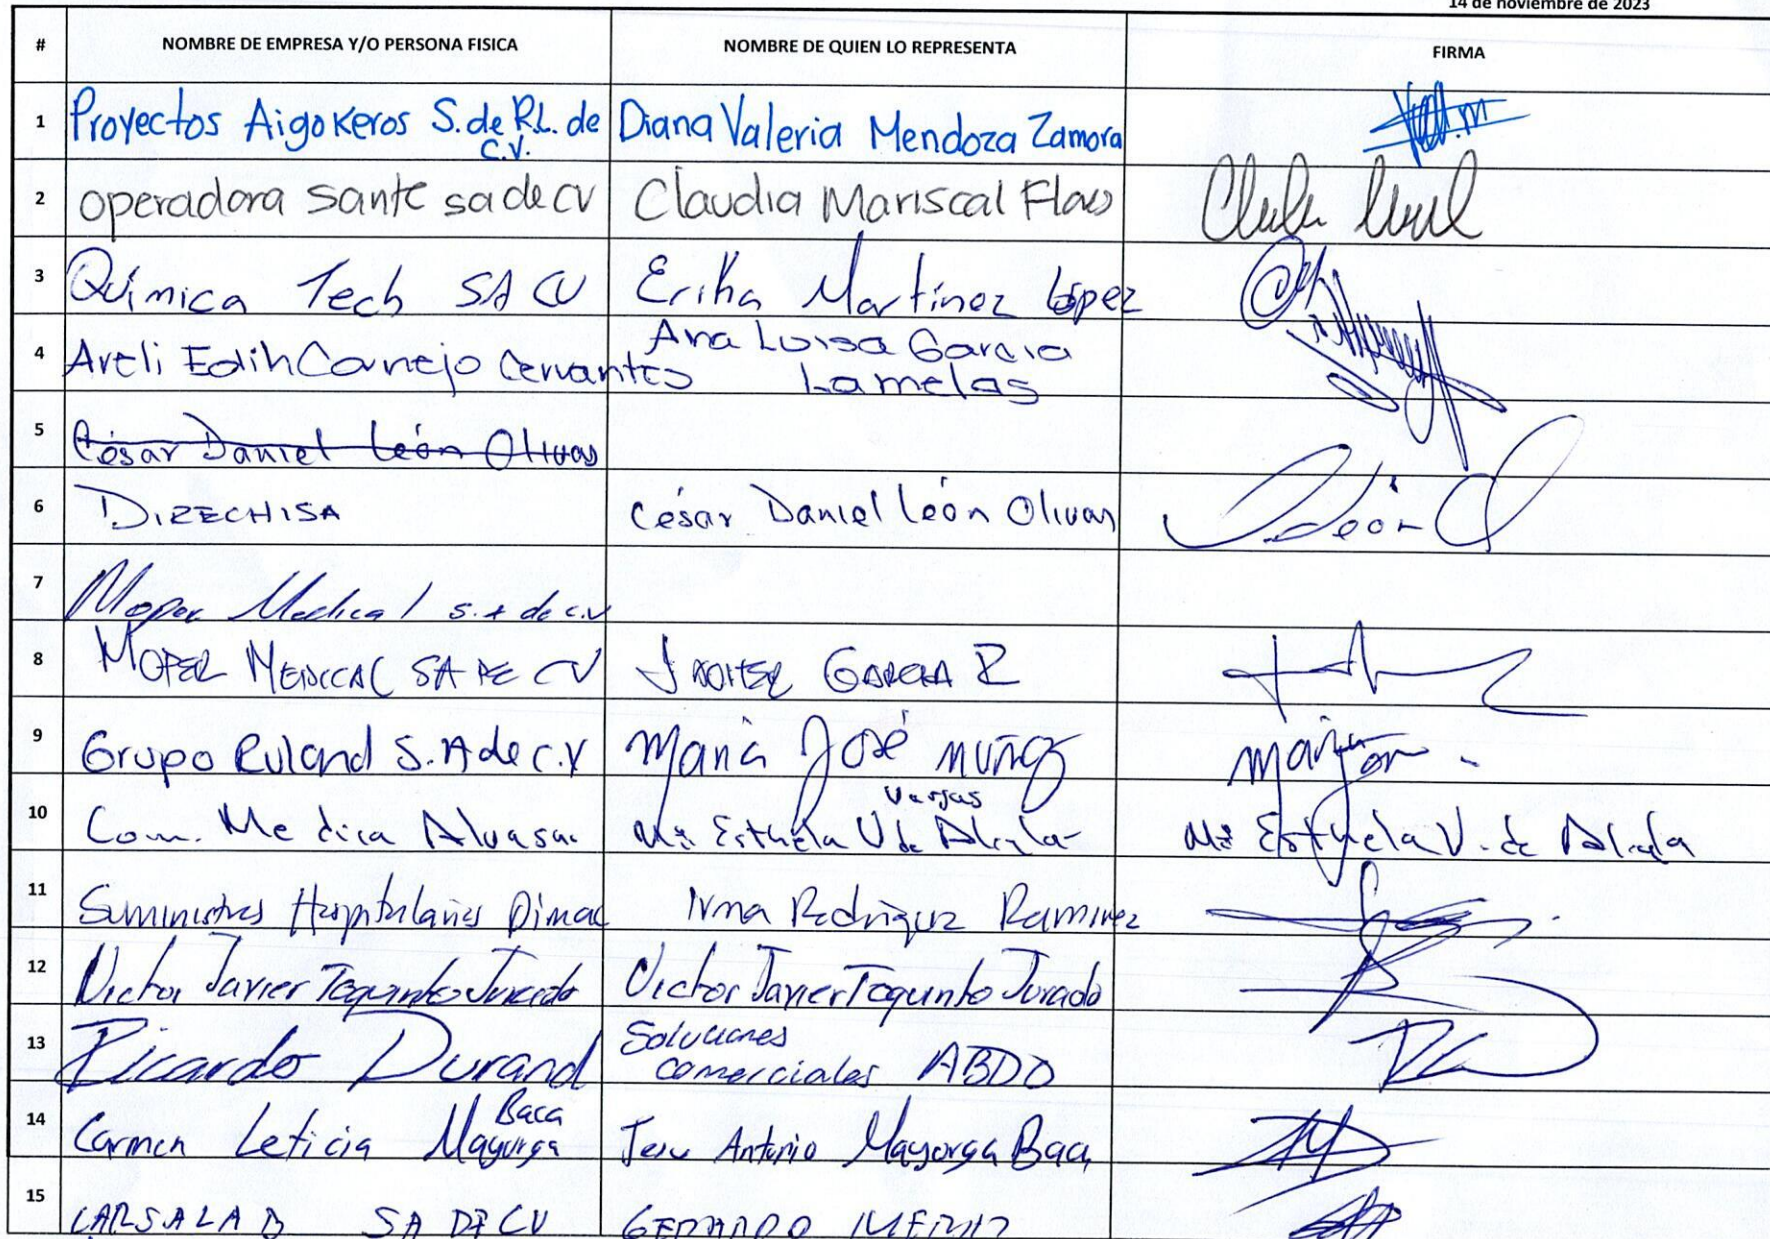 14 de noviembre de 2023
# NOMBRE DE EMPRESA Y/O PERSONA FISICA NOMBRE DE QUIEN LO REPRESENTA FIRMA
1 Proyectos Aigokeros S. de R.L. de C.V. Diana Valeria Mendoza Zamora
2 operadora sante sa de cv Claudia Mariscal Flores
3 Química Tech SA CV Erika Martínez López
4 Areli Edih Cornejo Cervantes Ana Luisa Garcia Lamelas
5 César Daniel León Olivas
6 DIRECHISA César Daniel León Olivas León
7 Moper Medical s.a de c.v
8 MOPER MEDICAL SA DE CV JAVIER GARCIA R
9 Grupo Ruland S.A de C.V María José Muñoz
10 Com. Medica Alvasa Ma Esthela Vargas V. de Alcala Ma Esthela V. de Alcala
11 Suministros Hospitalarios Dimac Irma Rodriguez Ramirez
12 Victor Javier Toquinto Jurado Victor Javier Toquinto Jurado
13 Ricardo Durand Soluciones comerciales ABDO
14 Carmen Leticia Mayorga Baca Antonio Mayorga Baca
15 CARSALAB SA DE CV GERARDO